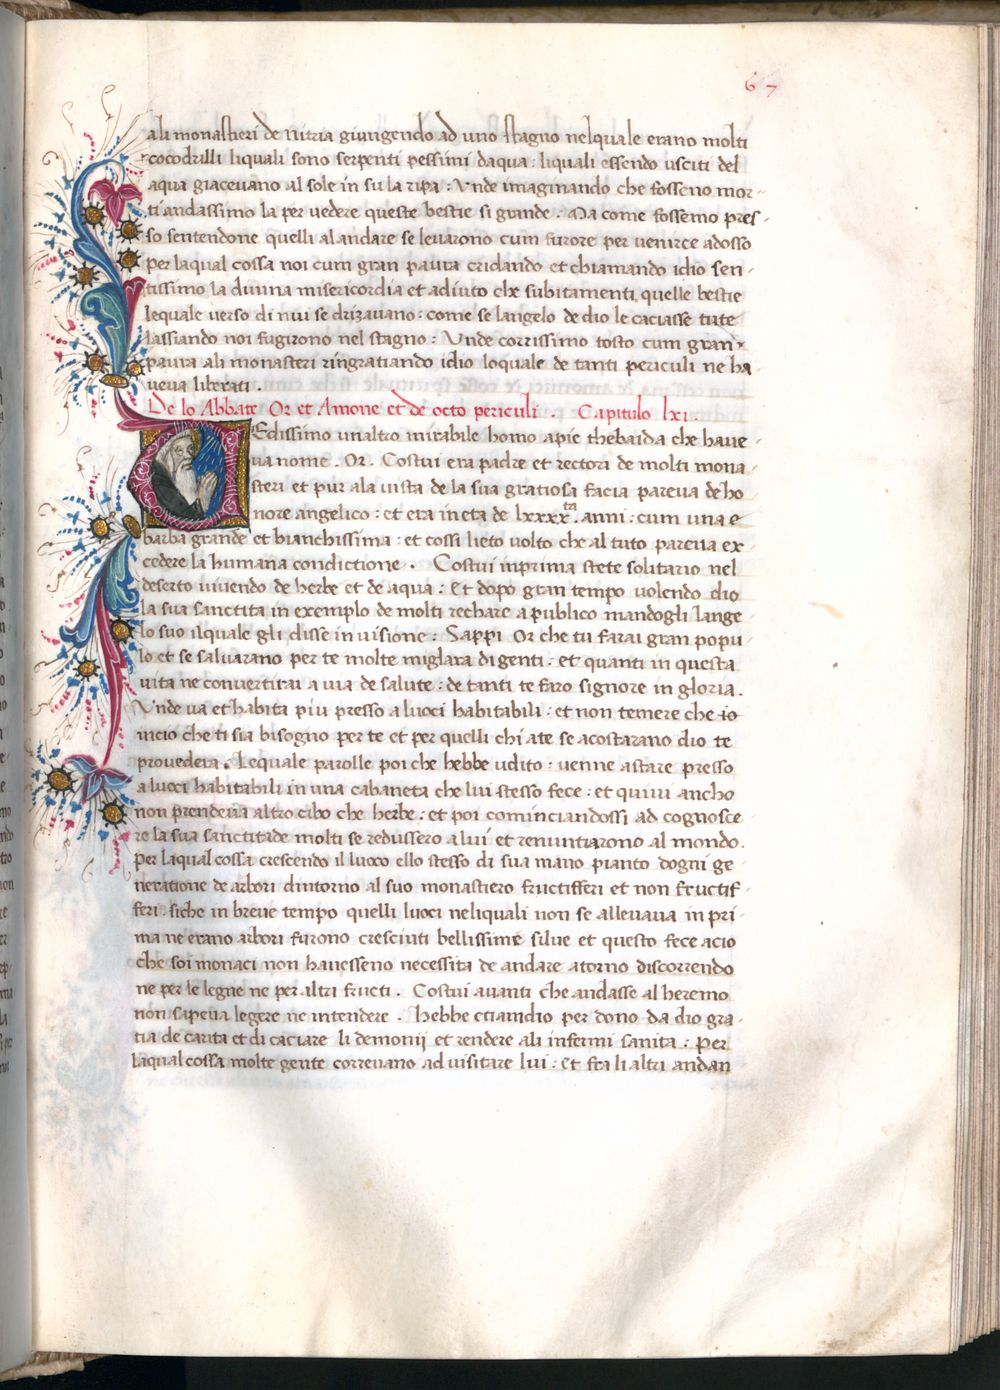 67
ali monastieri de nitria giungendo ad uno stagno nelquale erano molti
cocodrilli liquali sono serpenti pessimi daqua : liquali essendo usciti del
aqua giacevano al sole in su la ripa : Vnde imaginando che fosseno mor-
ti andassimo la per vedere queste bestie si grande . Ma come fossemo pres-
so sentendone quelli al andare se levarono cum furore per venirce adosso
per laqual cossa noi cum gran paura cridando et chiamando idio sen-
tissimo la divina misericordia et adiuto che subitamenti quelle bestie
lequale verso di nui se drizavano : come se langelo de dio le caciasse tute
lassiando noi fugirono nel stagno : Vnde corrissimo tosto cum gran
paura ali monasteri ringratiando idio loquale de tanti periculi ne ha
veva liberati .
De lo Abbate Or et Amone et de octo periculi . Capitulo lxi .
Vedissimo unaltro mirabile homo apie thebaida che have-
va nome . Or . Costui era padre et rectori de molti mona-
steri et pur ala vista de la sua gratiosa facia pareva de ho
nore angelico : et era in eta de lxxxx.ta anni : cum una e
barba grande et bianchissima : et cossi lieto volto che al tuto pareva ex-
cedere la humana condictione . Costui inprima stete solitario nel
deserto vivendo de herbe et de aqua : Et dopo gran tempo volendo dio
la sua sanctita in exemplo de molti rechare a publico mandogli lange-
lo suo ilquale gli disse in visione : Sappi Or che tu farai gran popu-
lo et se salvarano per te molte migliara di genti : et quanti in questa
vita ne convertirai a via de salute : de tanti te faro signore in gloria .
Vnde va et habita piu presso a luoci habitabili : et non temere che io
incio che ti sia bisogno per te et per quelli chi ate se acostarano dio te
provedera . Lequale parolle poi che hebbe udito : venne astare presso
a luoci habitabili in una cabaneta che lui stesso fece : et quivi ancho
non prendeva altro cibo che herbe : et poi cominciandossi ad cognosce-
re la sua sanctitade molti se redussero alui et renuntiarono al mondo .
Per laqual cossa crescendo il luoco ello stesso di sua mano pianto dogni ge-
neratione de arbori dintorno al suo monastiero fructifferi et non fructif-
feri . siche in breve tempo quelli luoci neliquali non se allevava in pri-
ma ne erano arbori furono cresciuti bellissime silve et questo fece acio
che soi monaci non havesseno necessita de andare atorno discorrendo
ne per le legne ne per altri fructi . Costui avanti che andasse al heremo
non sapeva legere ne intendere . hebbe etiamdio per dono da dio gra-
tia de carita et di caciare li demonij et rendere ali infermi sanita : Per
laqual cossa molte gente correvano ad visitare lui : Et fra li altri andan